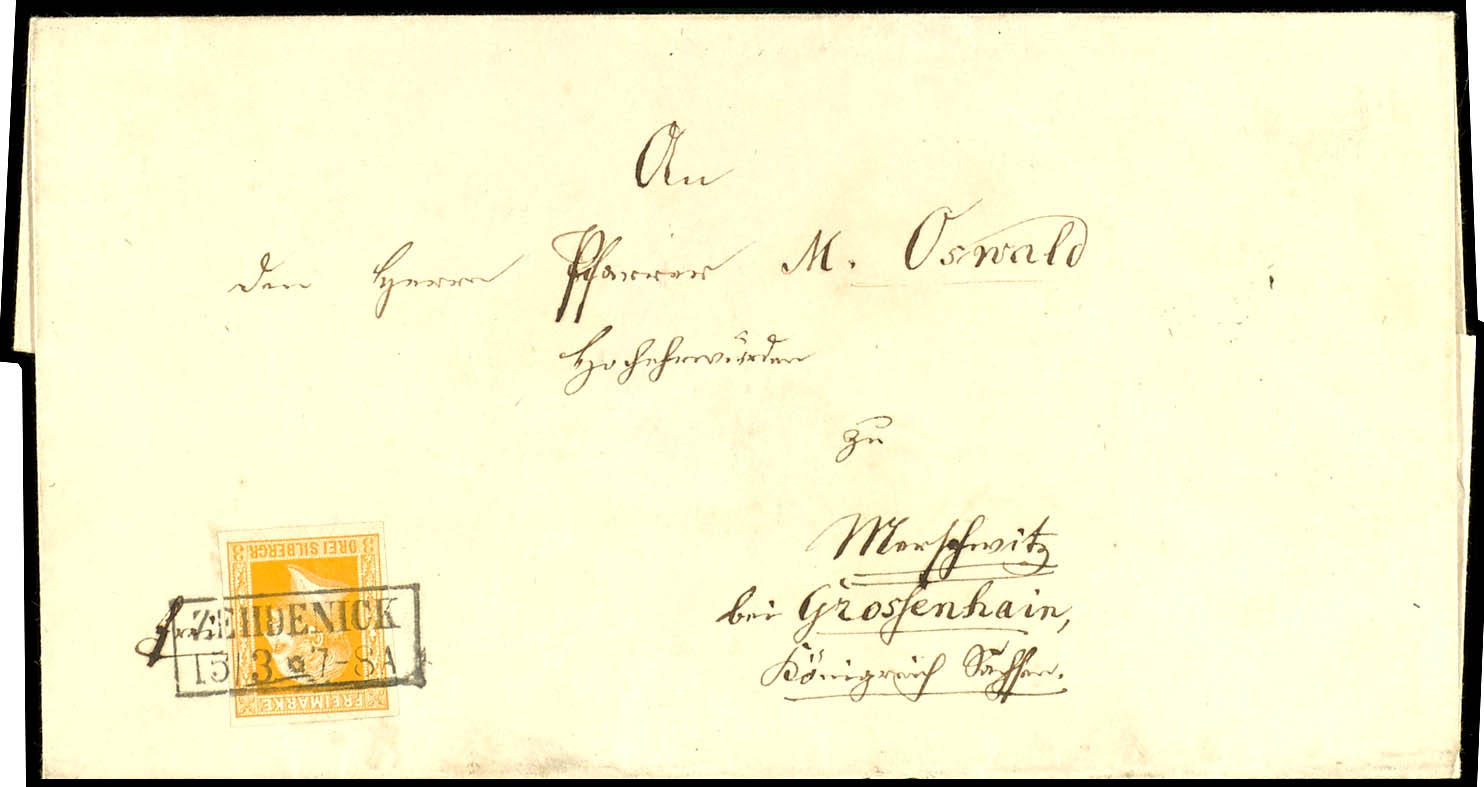 An
den Herrn Pfarrer M. Oswald
Hochehrwürden
zu
Merschwitz
bei Grossenhain,
Königreich Sachsen.
frei
ZEHDENICK
15|3 * 7-8A
3 DREI SILBERGR 3
FREIMARKE